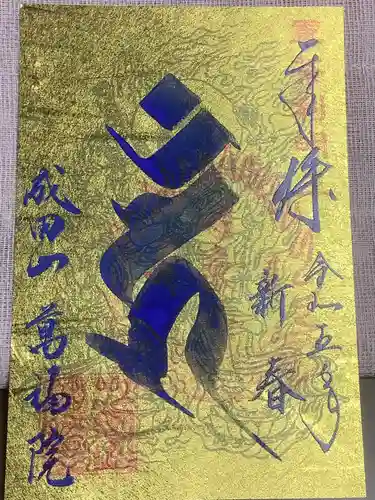 奉拝
令和五年
新春
成田山 萬福院